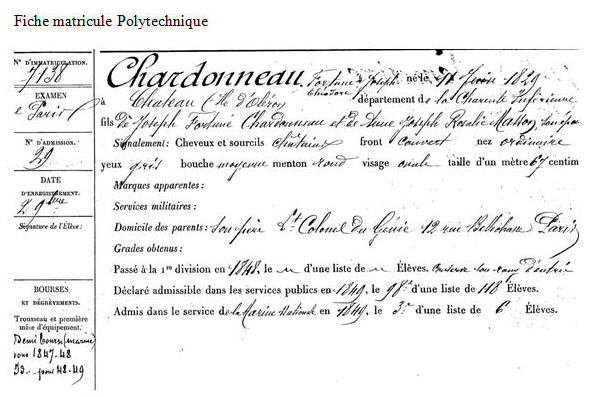 Fiche matricule Polytechnique
N° D'IMMATRICULATION.
7138
EXAMEN
Paris
N° D'ADMISSION.
29
DATE
D'ENREGISTREMENT.
29 9bre
Signature de l'Élève:
BOURSES
ET DÉGRÈVEMENTS.
Trousseau et première
mise d'équipement.
Demi bourse (marine)
1847-48
pour 48-49
Chardonneau, Fortuné Joseph né le Juin 1829
Théodore
à Chateau (Ile d'Oléron département de la Charente Inférieure
fils De Joseph Fortuné Chardonneau et de Anne Joseph Rosalie Masson, son épouse
Signalement: Cheveux et sourcils châtains front couvert nez ordinaire
yeux gris bouche moyenne menton rond visage ovale taille d'un mètre 67 centim
Marques apparentes:
Services militaires:
Domicile des parents: son père Lt Colonel du Génie 12 rue Bellechasse Paris
Grades obtenus:
Passé à la 1re division en 1848, le n d'une liste de n Élèves. Conserve son rang d'entrée
Déclaré admissible dans les services publics en 1849, le 98e d'une liste de 118 Élèves.
Admis dans le service de la Marine Nationale en 1849, le 3e d'une liste de 6 Élèves.